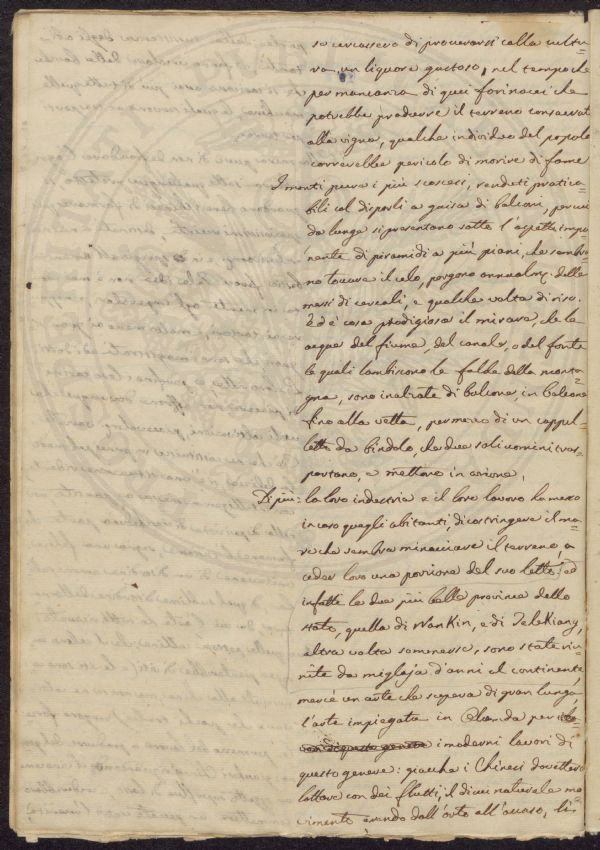 so cercassero di procurarsi colla cultu-
ra, un liquore gustoso, nel tempo che
per mancanza di quei farinacei che
potrebbe produrre il terreno conservato
alla vigna, qualche individuo del popolo
correrebbe pericolo di morire di fame
I monti pure i più scoscesi, renduti pratica-
bili col disporli a guisa di balconi, per cui
da lunge si presentano sotto l'aspetto impo
nente di piramidi a più piani, che sembra
no toccare il celo, porgono annualm: delle
messi di cereali, e qualche volta di riso.
Ed è cosa prodigiosa il mirare, che le
acque del fiume, del canale, o del fonte
le quali lambiscono le falde della monta-
gna, sono inalzate di balcone, in balcone
fino alla vetta, per mezzo di un
da bindolo, che due soli uomini tras-
portano, e mettono in azione.
Di più: la loro industria e il loro lavoro ha messo
in caso quegli abitanti, di costringere il ma-
re che sembra minacciare il terreno, a
ceder loro una porzione del suo letto: ed
infatti le due più belle provincie dello
stato, quella di NanKin, e di TcheKiang,
altra volta sommerse, sono state riu-
nite da migliaja d'anni al continente,
mercè un arte che supera di gran lunga,
l'arte impiegata in Olanda per
di questo genere i moderni lavori di
questo genere: giacchè i Chinesi dovettero
lottare con dei flutti, il di cui naturale mo
vimento avendo dall'orto all'occaso, li